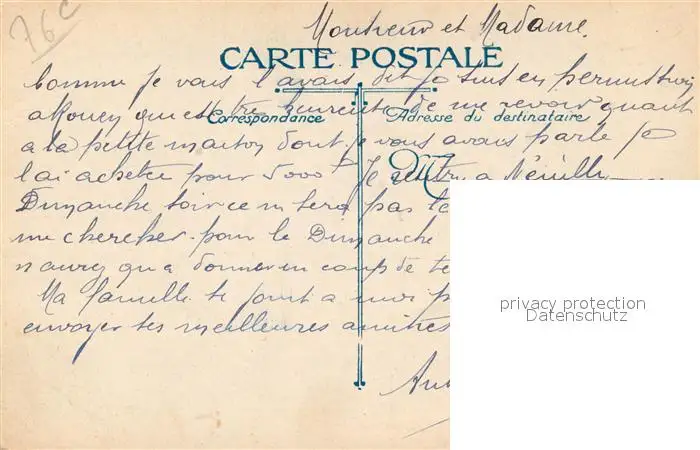 76c
Monsieur et Madame.
CARTE POSTALE
Comme je vous l'avais dit je suis en permission
a Rouen qui est tre heureuse de me revoir quant
Correspondance Adresse du destinataire
a la petite maison dont je vous avais parle je
l'ai achetee pour 5000 F Je rentre a Neuilly
Dimanche soir ce ne sera pas la
me chercher pour le Dimanche
n'aurez qu'a donner un coup de te
Ma famille se joint a moi p
envoyer ses meilleures amities
privacy protection
Datenschutz